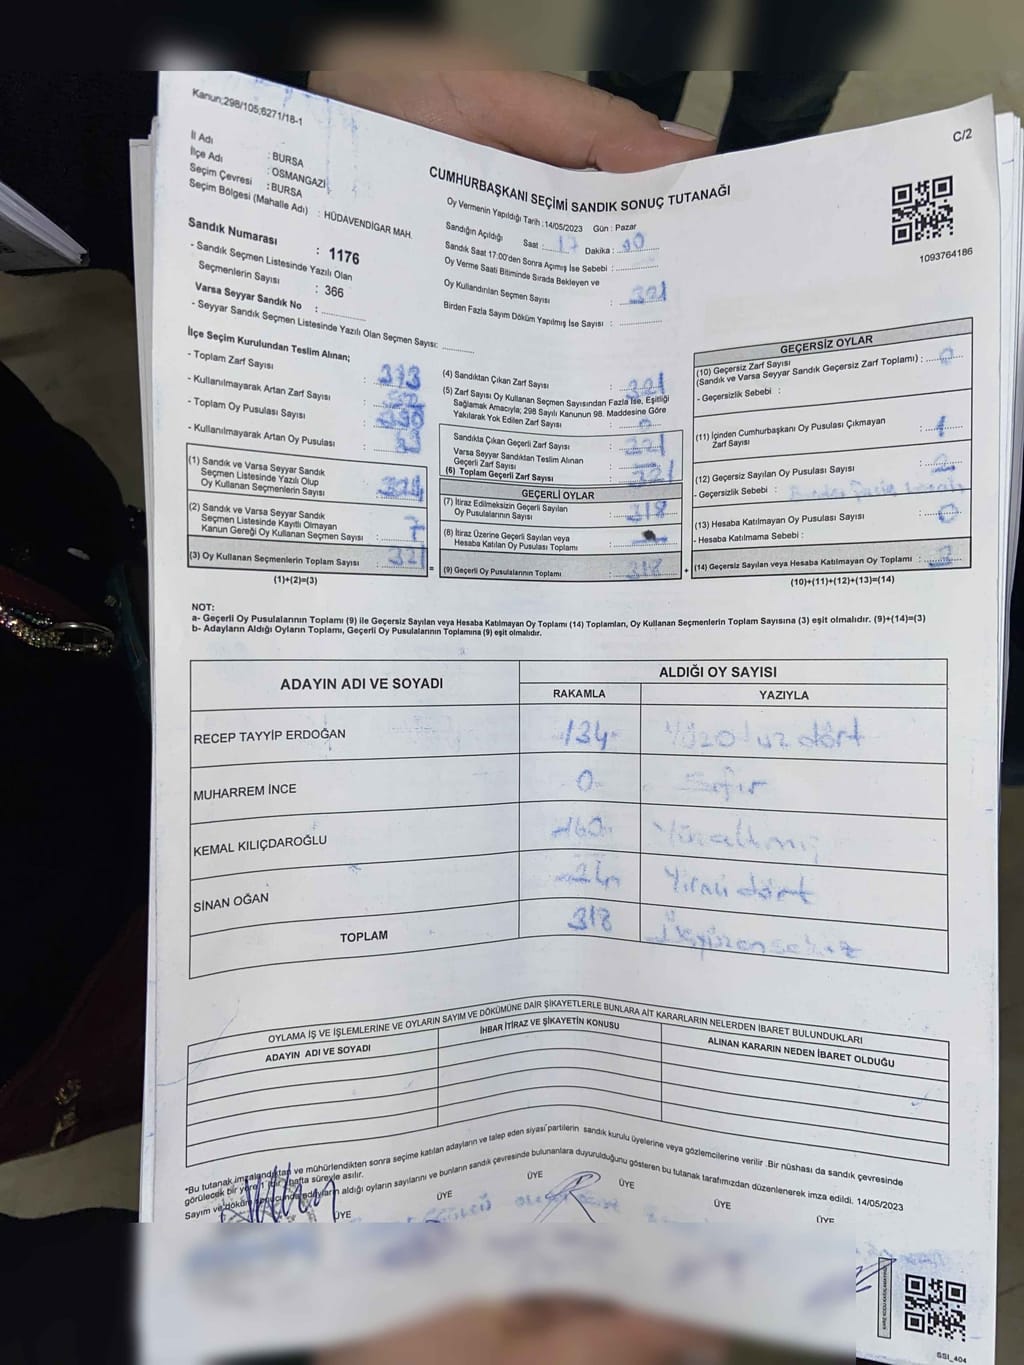 Kanun;298/105;6271/18-1
C/2
İl Adı : BURSA
İlçe Adı : OSMANGAZİ
Seçim Çevresi : BURSA
Seçim Bölgesi (Mahalle Adı) : HÜDAVENDİGAR MAH.
CUMHURBAŞKANI SEÇİMİ SANDIK SONUÇ TUTANAĞI
Oy Vermenin Yapıldığı Tarih :14/05/2023 Gün : Pazar
Sandığın Açıldığı Saat : 17 Dakika :
Sandık Saat 17.00'den Sonra Açımış İse Sebebi :
Oy Verme Saati Bitiminde Sırada Bekleyen ve
Oy Kullandırılan Seçmen Sayısı : 321
Birden Fazla Sayım Döküm Yapılmış İse Sayısı :
1093764186
Sandık Numarası : 1176
- Sandık Seçmen Listesinde Yazılı Olan
Seçmenlerin Sayısı : 366
Varsa Seyyar Sandık No :
- Seyyar Sandık Seçmen Listesinde Yazılı Olan Seçmen Sayısı:
İlçe Seçim Kurulundan Teslim Alınan;
- Toplam Zarf Sayısı :
- Kullanılmayarak Artan Zarf Sayısı :
- Toplam Oy Pusulası Sayısı :
- Kullanılmayarak Artan Oy Pusulası :
(1) Sandık ve Varsa Seyyar Sandık
Seçmen Listesinde Yazılı Olup
Oy Kullanan Seçmenlerin Sayısı :
(2) Sandık ve Varsa Seyyar Sandık
Seçmen Listesinde Kayıtlı Olmayan
Kanun Gereği Oy Kullanan Seçmen Sayısı : 7
(3) Oy Kullanan Seçmenlerin Toplam Sayısı : 321
(1)+(2)=(3)
(4) Sandıktan Çıkan Zarf Sayısı : 321
(5) Zarf Sayısı Oy Kullanan Seçmen Sayısından Fazla İse, Eşitliği
Sağlamak Amacıyla; 298 Sayılı Kanunun 98. Maddesine Göre
Yakılarak Yok Edilen Zarf Sayısı : 0
Sandıkta Çıkan Geçerli Zarf Sayısı : 321
Varsa Seyyar Sandıktan Teslim Alınan
Geçerli Zarf Sayısı :
(6) Toplam Geçerli Zarf Sayısı : 321
GEÇERLİ OYLAR
(7) İtiraz Edilmeksizin Geçerli Sayılan
Oy Pusulalarının Sayısı : 318
(8) İtiraz Üzerine Geçerli Sayılan veya
Hesaba Katılan Oy Pusulası Toplamı :
(9) Geçerli Oy Pusulalarının Toplamı : 318
GEÇERSİZ OYLAR
(10) Geçersiz Zarf Sayısı
(Sandık ve Varsa Seyyar Sandık Geçersiz Zarf Toplamı) : 0
- Geçersizlik Sebebi :
(11) İçinden Cumhurbaşkanı Oy Pusulası Çıkmayan
Zarf Sayısı : 1
(12) Geçersiz Sayılan Oy Pusulası Sayısı : 2
- Geçersizlik Sebebi :
(13) Hesaba Katılmayan Oy Pusulası Sayısı : 0
- Hesaba Katılmama Sebebi :
(14) Geçersiz Sayılan veya Hesaba Katılmayan Oy Toplamı : 3
(10)+(11)+(12)+(13)=(14)
NOT:
a- Geçerli Oy Pusulalarının Toplamı (9) ile Geçersiz Sayılan veya Hesaba Katılmayan Oy Toplamı (14) Toplamları, Oy Kullanan Seçmenlerin Toplam Sayısına (3) eşit olmalıdır. (9)+(14)=(3)
b- Adayların Aldığı Oyların Toplamı, Geçerli Oy Pusulalarının Toplamına (9) eşit olmalıdır.
ADAYIN ADI VE SOYADI ALDIĞI OY SAYISI
RAKAMLA YAZIYLA
RECEP TAYYİP ERDOĞAN 134 Yüzotuz dört
MUHARREM İNCE 0 Sıfır
KEMAL KILIÇDAROĞLU 160 Yüzaltmış
SİNAN OĞAN 24 Yirmi dört
TOPLAM 318 Üçyüzonsekiz
OYLAMA İŞ VE İŞLEMLERİNE VE OYLARIN SAYIM VE DÖKÜMÜNE DAİR ŞİKAYETLERLE BUNLARA AİT KARARLARIN NELERDEN İBARET BULUNDUKLARI
ADAYIN ADI VE SOYADI İHBAR İTİRAZ VE ŞİKAYETİN KONUSU ALINAN KARARIN NEDEN İBARET OLDUĞU
*Bu tutanak imzalandıktan ve mühürlendikten sonra seçime katılan adayların ve talep eden siyasi partilerin sandık kurulu üyelerine veya gözlemcilerine verilir .Bir nüshası da sandık çevresinde
görülecek bir yere 1 hafta süreyle asılır.
Sayım ve döküm sonucunda adayların aldığı oyların sayılarını ve bunların sandık çevresinde bulunanlara duyurulduğunu gösteren bu tutanak tarafımızdan düzenlenerek imza edildi. 14/05/2023
ÜYE ÜYE ÜYE ÜYE ÜYE ÜYE
SSI_404